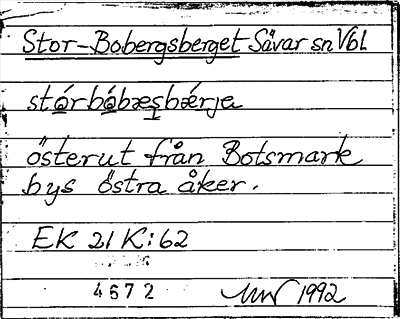 Stor-Bobergsberget Sävar sn Vbl
stórbóbæsbǽrja
österut från Botsmark
bys östra åker.
EK 21 K:62
4672 1992